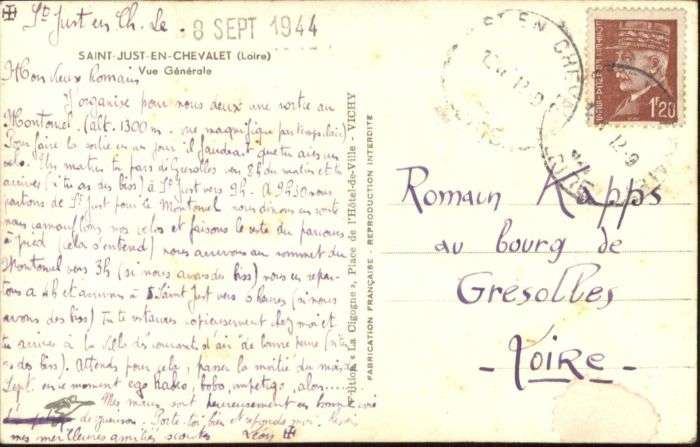 St Just en Ch. Le 8 SEPT 1944
SAINT-JUST-EN-CHEVALET (Loire)
Vue Générale
Mon vieux Romain
J'organise pour nous deux une sortie au
Montoncel (alt. 1300 m. vue magnifique par temps clair)
Pour faire la sortie en un jour il faudrait que tu aies un
vélo. Un matin tu pars de Grésolles vers 8h du matin et tu
arrives (si tu as des biss) à St Just vers 9h. A 9h30 nous
partons de St Just pour le Montoncel nous dînons en route
nous camouflons nos vélos et faisons le reste du parcours
à pied (cela s'entend) nous arrivons au sommet du
Montoncel vers 3h (si nous avons des biss) nous en repar-
tons à 4h et arrivons à Saint Just vers 6 heures (si nous
avons des biss) Tu te restaures copieusement chez moi et
tu arrives à la
des biss). Attends pour cela, passer la moitié du mois de
Sept. en ce moment ego habeo, bobo, impetigo, alors....
Mes maux sont heureusement en bonne voie
de guérison. Porte toi bien et réponds moi.
mes meilleures amitiés scoutes Léon
Edition « La Cigogne », Place de l'Hôtel-de-Ville - VICHY
FABRICATION FRANÇAISE - REPRODUCTION INTERDITE
1f20
Romain Kapps
au bourg de
Gresolles
- Loire -